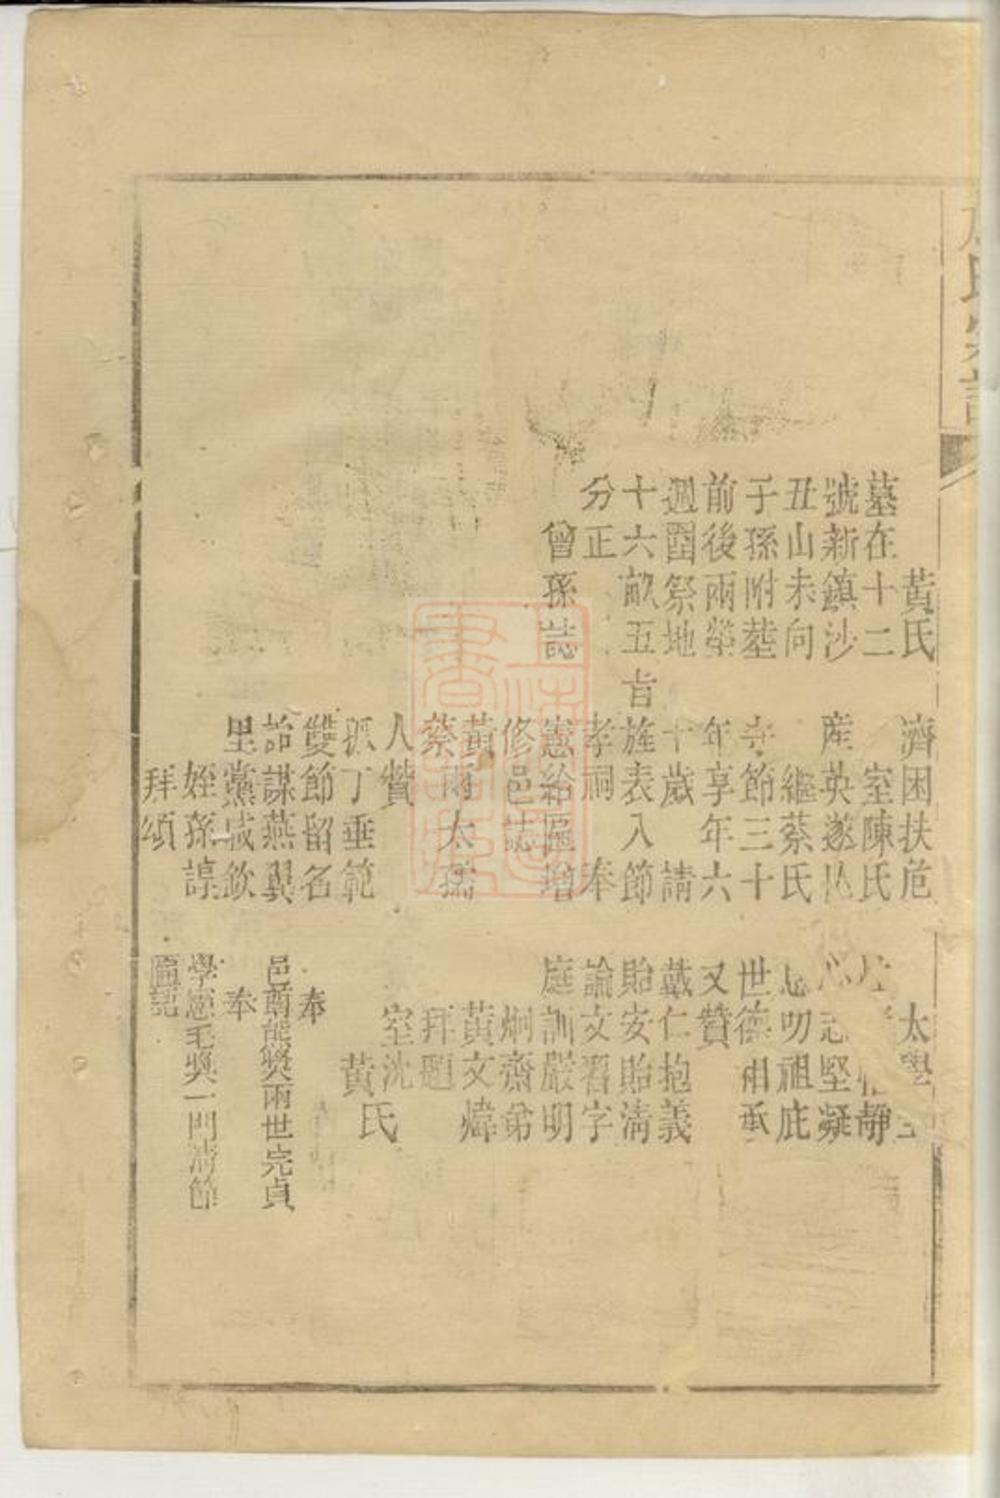 氏宗譜
黃氏
墓在十二
號新鎮沙
丑山未向
子孫附塟
前後兩塋
週圍祭地
十六畝五
分正
曾孫誌
濟困扶危
室陳氏
産英遂
繼蔡氏
守節三十
年享年六
十歲請
旨旌表入節
孝祠奉
憲給匾增
修邑誌
黃
蔡兩太孺
人贊
孤丁垂範
雙節留名
詒謀燕翼
里黨咸欽
姪孫諄
拜頌
太學
靜
志堅凝
忠叨祖庇
世德相承
又贊
戴仁抱義
貽安貽淸
論文習字
庭訓嚴明
炯齋弟
黃文煒
拜題
室沈
黃氏
奉
邑尊能奬兩世完貞
奉
學憲毛奬一門淸節
匾記